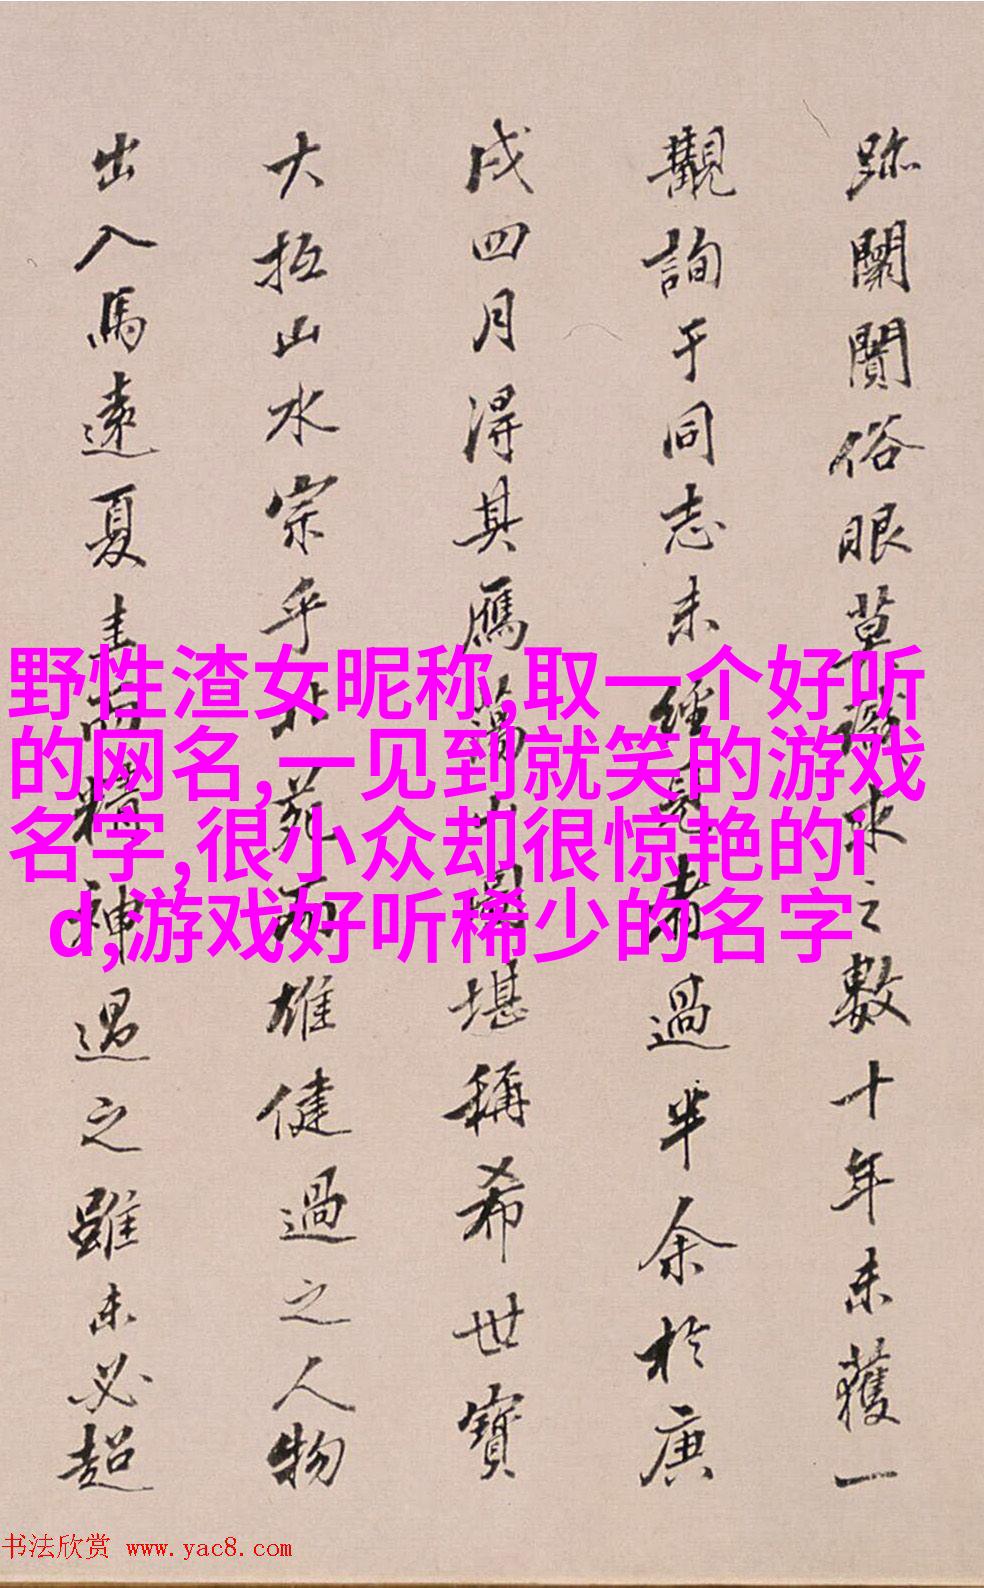 跡闤闠俗眼草
求之數十年未獲一
觀詢于同志未經見者過半余於庚
戌四月得其鴈蕩山圖堪稱希世寶
大抵山水宗乎北苑而雄健過之人物
出入馬遠夏圭而精神過之雖未必超
野性渣女昵称,取一个好听
的网名,一见到就笑的游戏
名字,很小众却很惊艳的i
d,游戏好听稀少的名字
书法欣赏 www.yac8.com